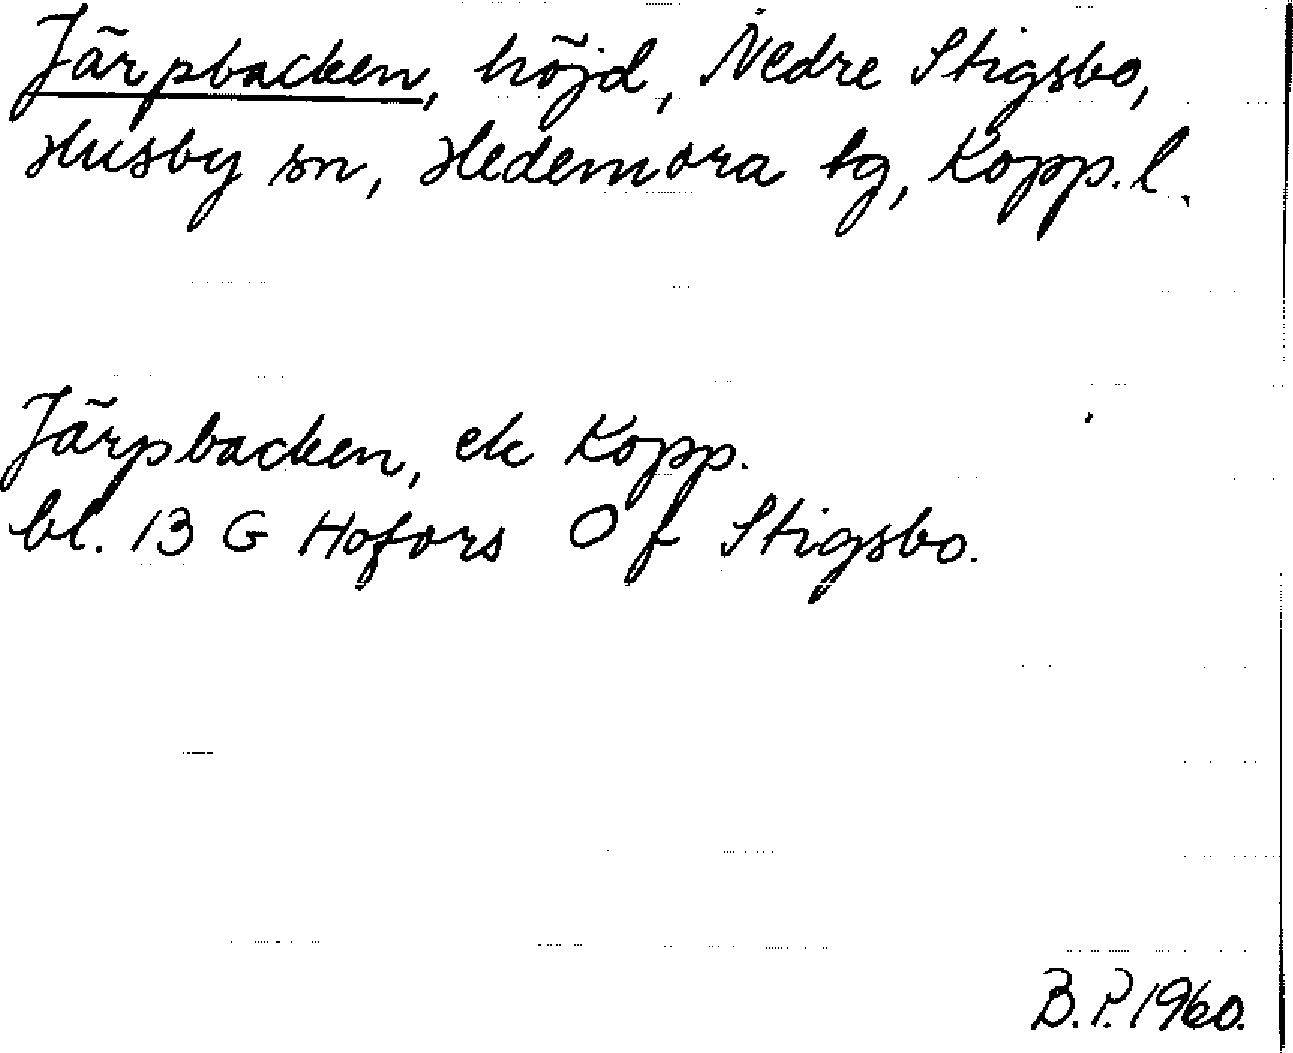 Järpbacken, höjd, Nedre Stigsbo,
Husby sn, Hedemora tg, Kopp. l.
Järpbacken, ek Kopp.
bl. 13 G Hofors O f Stigsbo.
B.P. 1960.